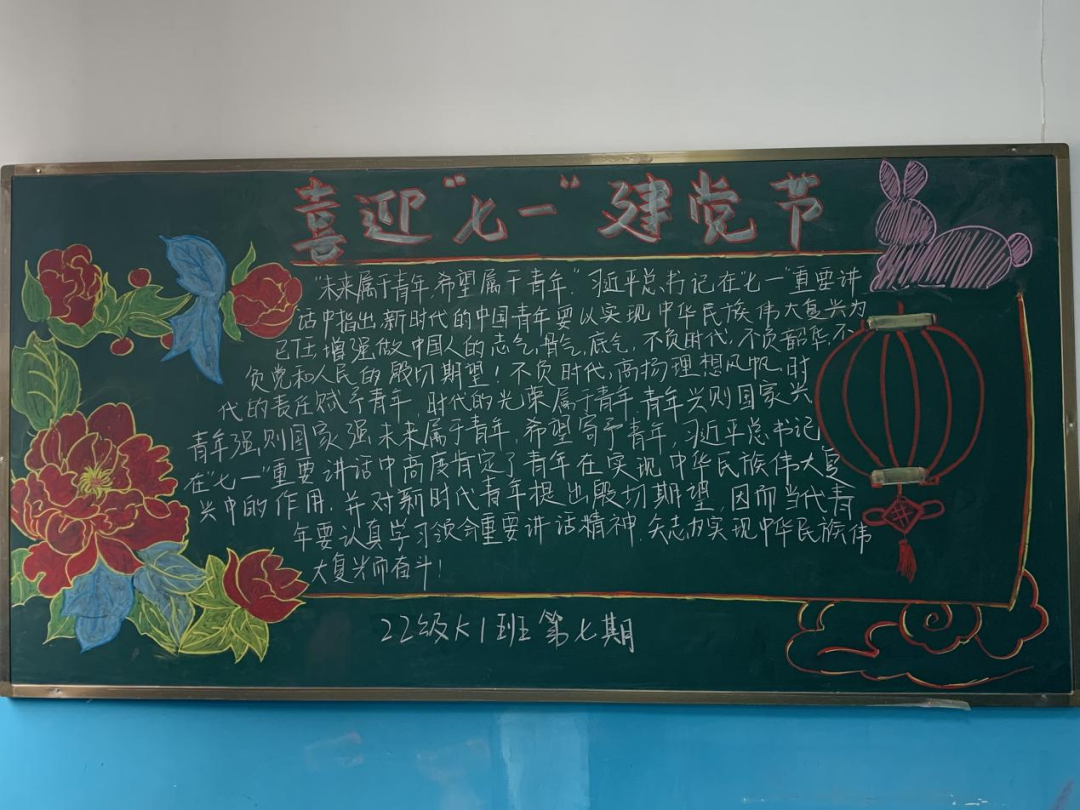 喜迎“七一”建党节
“未来属于青年,希望属于青年”习近平总书记在“七一”重要讲
话中指出新时代的中国青年要以实现中华民族伟大复兴为
己任增强做中国人的志气,骨气,底气,不负时代,不负韶华,不
负党和人民的殷切期望!不负时代,高扬理想风帆,时
代的责任赋予青年,时代的光荣属于青年,青年兴则国家兴
青年强则国家强,未来属于青年,希望寄予青年,习近平总书记
在“七一”重要讲话中高度肯定了青年在实现中华民族伟大复
兴中的作用,并对新时代青年提出殷切期望,因而当代青
年要认真学习领会重要讲话精神,矢志为实现中华民族伟
大复兴而奋斗!
22级K1班第七期